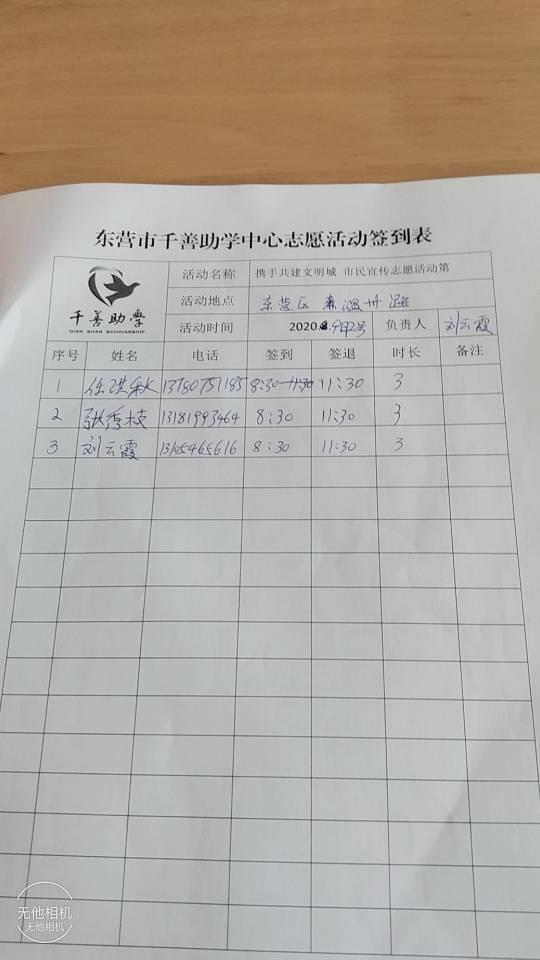 东营市千善助学中心志愿活动签到表
千善助学
QIAN SHAN SCHOLARSHIP
活动名称 携手共建文明城 市民宣传志愿活动第
活动地点 东营区
活动时间 2020. 负责人 刘云霞
序号 姓名 电话 签到 签退 时长 备注
1 13780751185 8:30 11:30 11:30 3
2 张秀枝 13181993464 8:30 11:30 3
3 刘云霞 13105465616 8:30 11:30 3
无他相机
无他相机